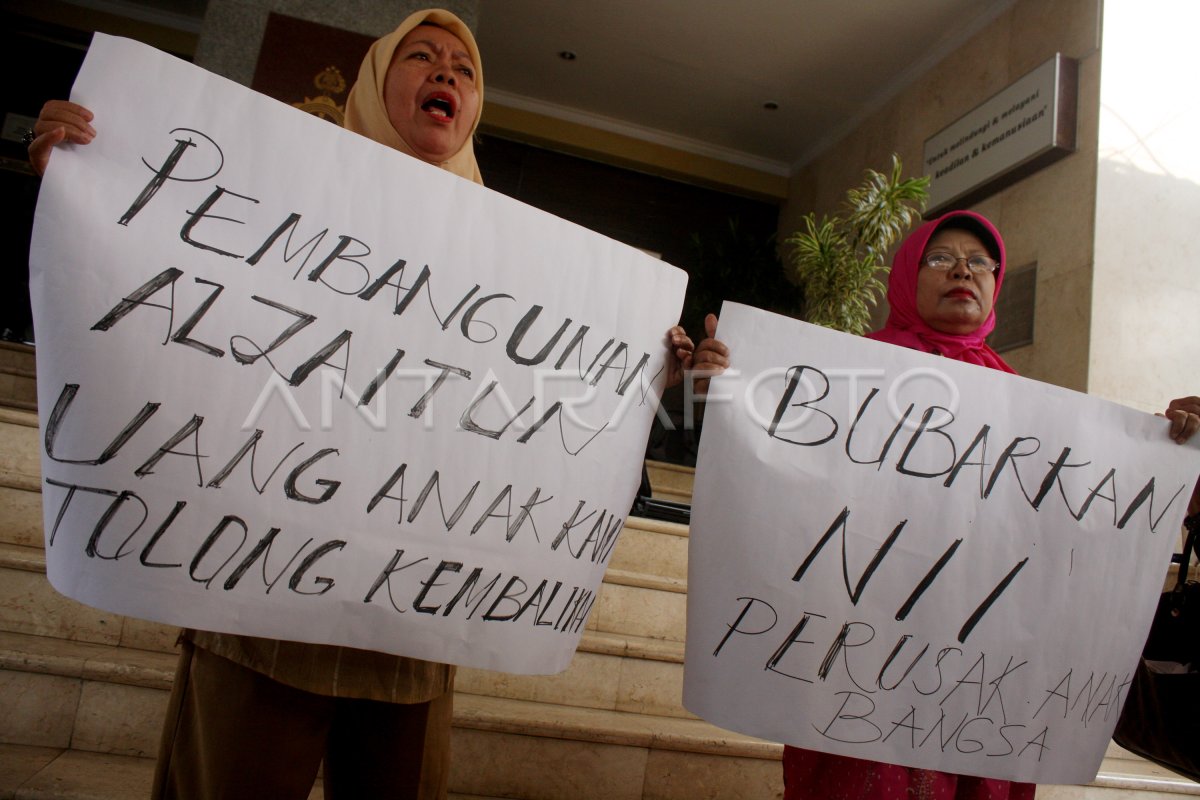 PEMBANGUNAN
ALZAITUN
UANG ANAK KAMI
TOLONG KEMBALIKAN
BUBARKAN
NII
PERUSAK ANAK
BANGSA
"Untuk melindungi & melayani
keadilan & kemanusiaan"
ANTARAFOTO